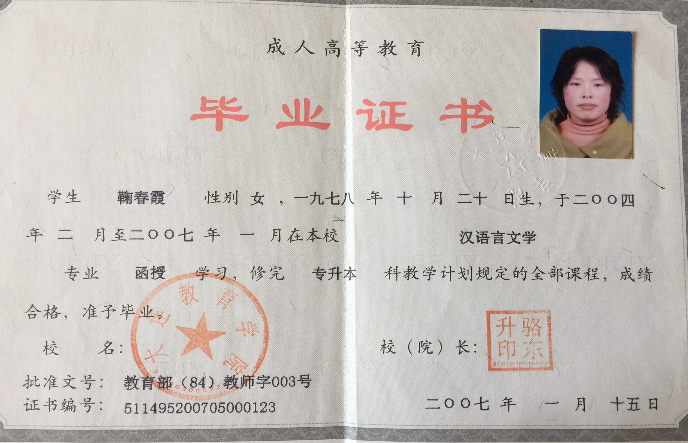 成人高等教育
毕业证书
学生 鞠春霞 性别 女，一九七八 年 十 月 二十 日生，于二〇〇四
年 二 月至二〇〇七 年 一 月在本校 汉语言文学
专业 函授 学习，修完 专升本 科教学计划规定的全部课程，成绩
合格，准予毕业。
校 名： 校（院）长：
教育学院
骆东升印
批准文号： 教育部（84）教师字003号
证书编号： 511495200705000123
二〇〇七 年 一 月 十五日